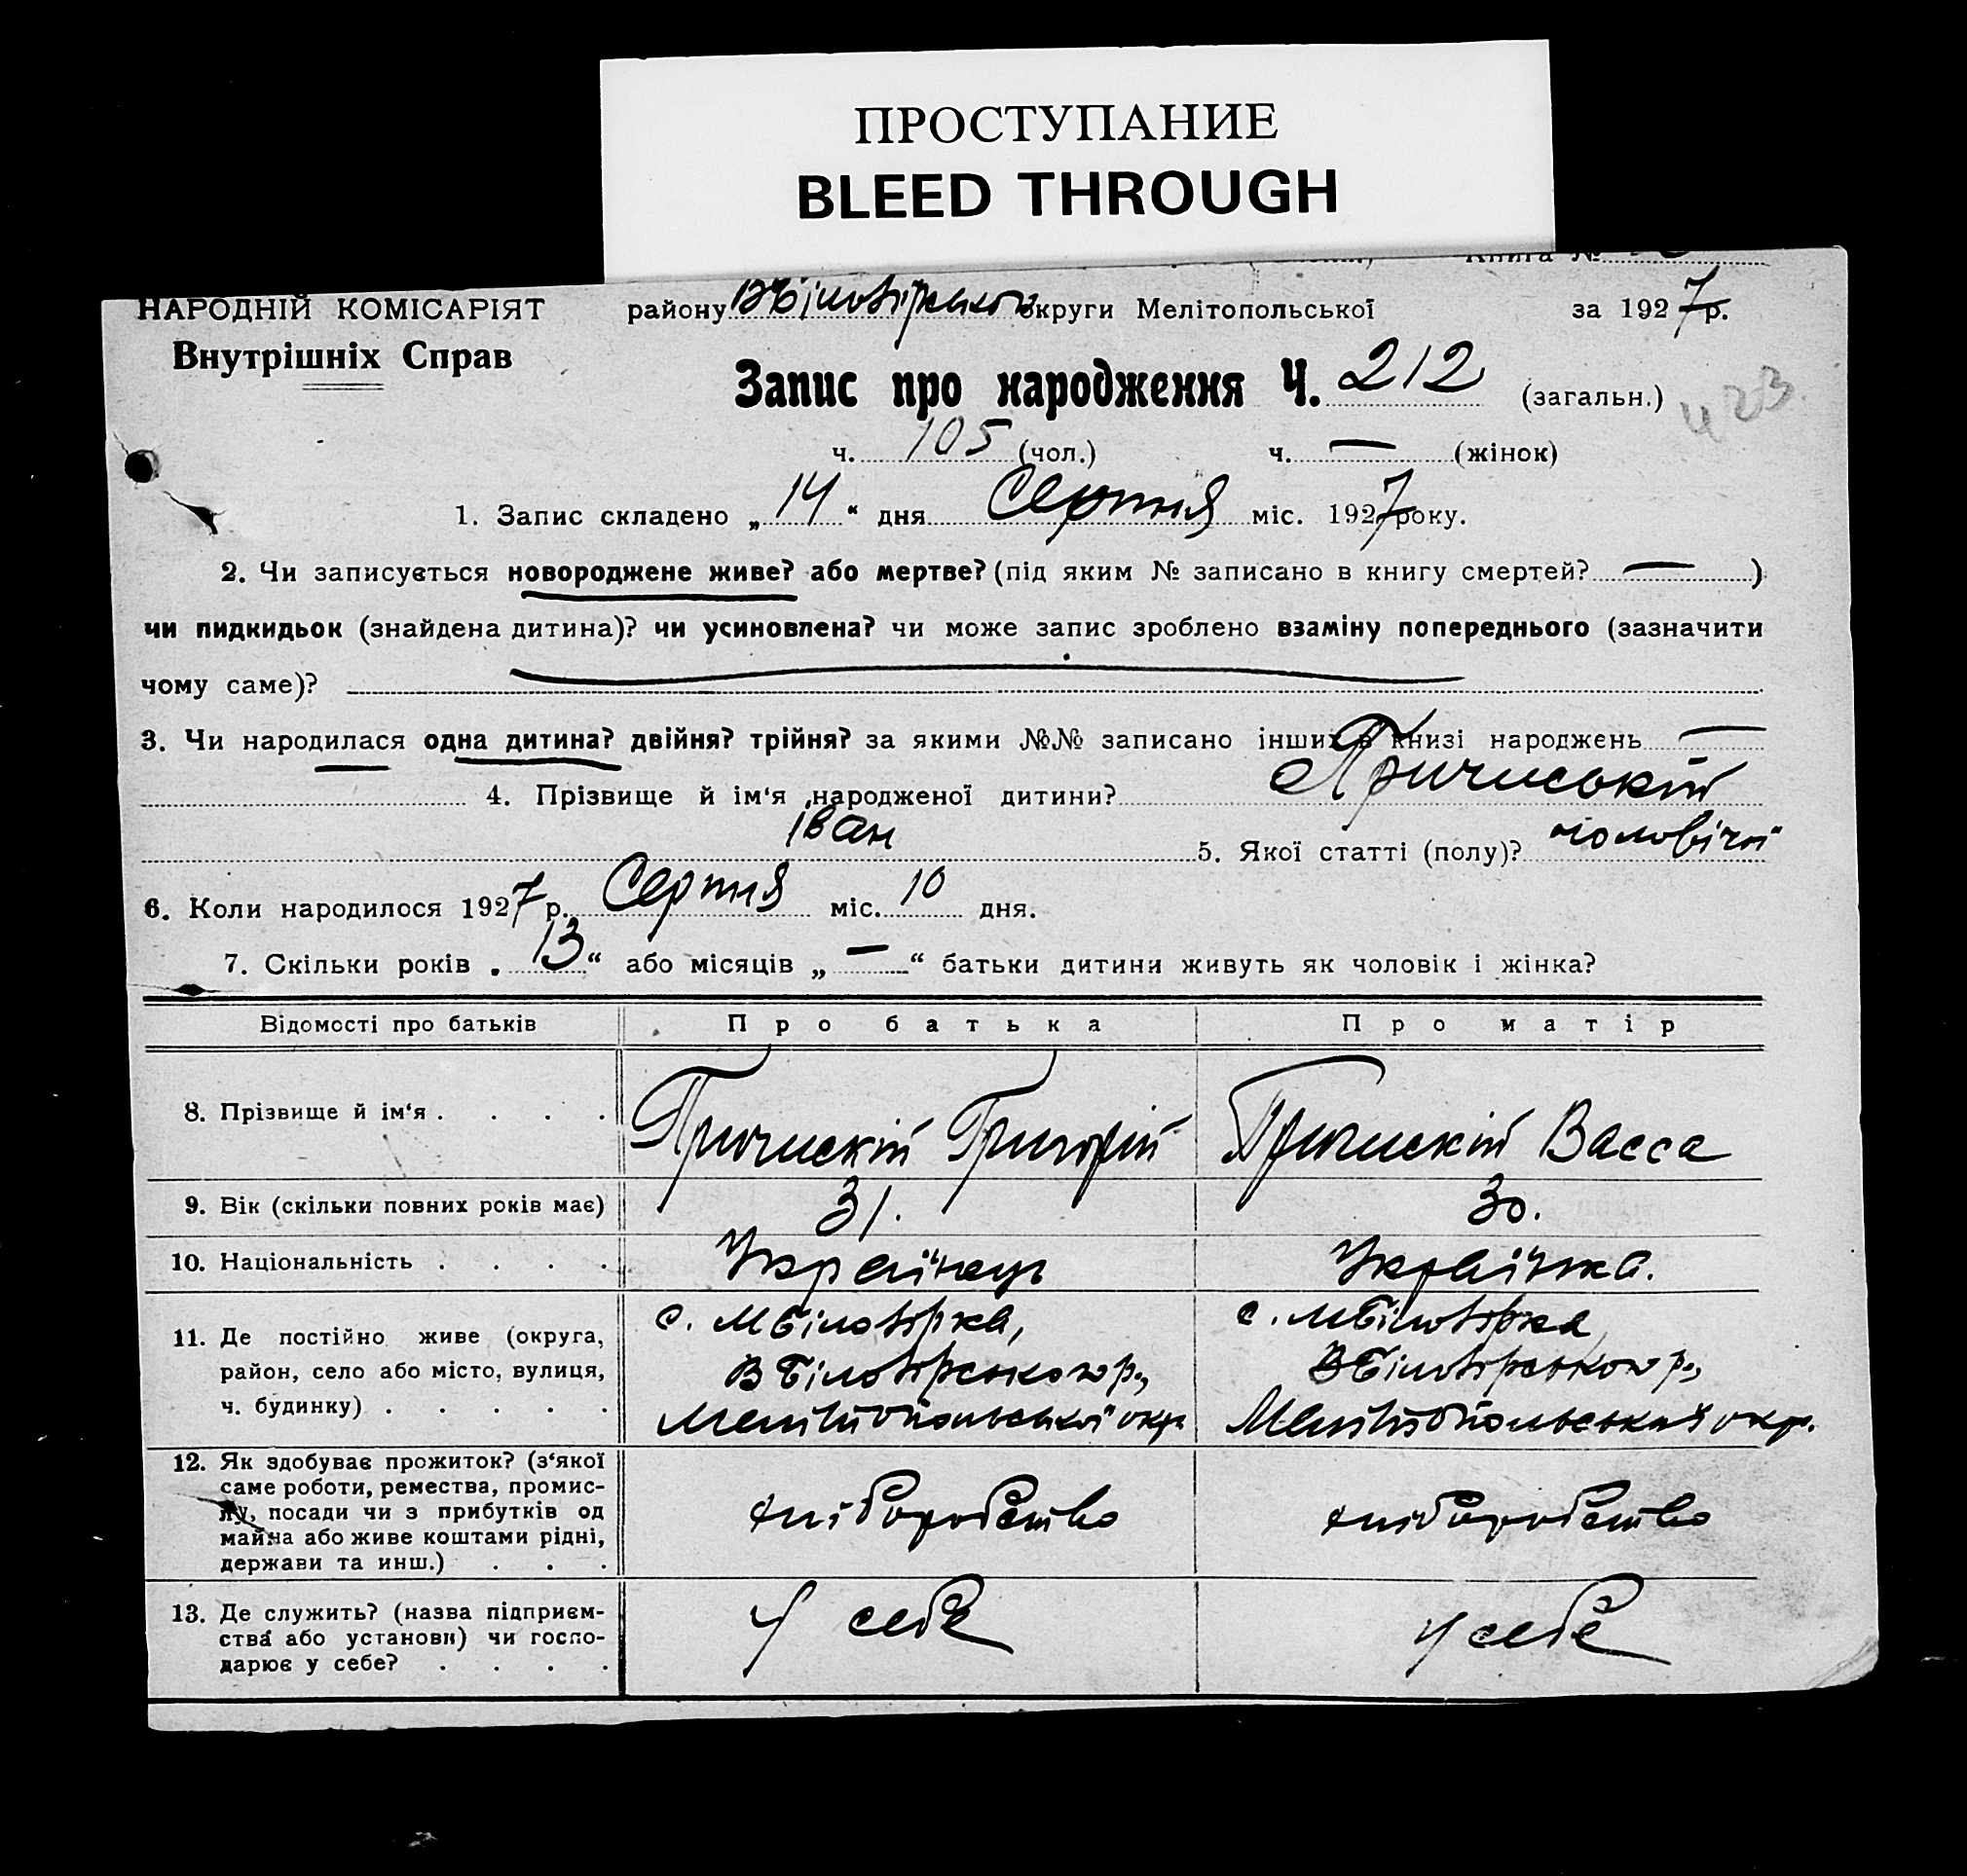 ПРОСТУПАНИЕ
BLEED THROUGH
НАРОДНІЙ КОМІСАРІЯТ району ВБілозірського округи Мелітопольської за 1927 р.
Внутрішніх Справ
Запис про народження Ч. 212 (загальн.) 423
ч. 105 (чол.) ч. — (жінок)
1. Запис складено „14“ дня Серпня міс. 1927 року.
2. Чи записується новороджене живе? або мертве? (під яким № записано в книгу смертей? — )
чи пидкидьок (знайдена дитина)? чи усиновлена? чи може запис зроблено взаміну попереднього (зазначити
чому саме)?
3. Чи народилася одна дитина? двійня? трійня? за якими №№ записано інших в книзі народжень —
4. Прізвище й ім‘я народженої дитини?
Іван 5. Якої статті (полу)? чоловічої
6. Коли народилося 1927 р. Серпня міс. 10 дня.
7. Скільки років „13“ або місяців „—“ батьки дитини живуть як чоловік і жінка?
Відомості про батьків Про батька Про матір
8. Прізвище й ім‘я . . . . Григорій Васса
9. Вік (скільки повних років має) 31. 30.
10. Національність . . . . Українець Українка.
11. Де постійно живе (округа, с. МБілозірка, с. МБілозірка
район, село або місто, вулиця, ВБілозірського р., ВБілозірського р.,
ч. будинку) . . . . . Мелітопольської окр. Мелітопольської окр.
12. Як здобуває прожиток? (з‘якої
саме роботи, ремества, промис-
лу, посади чи з прибутків од хліборобство хліборобство
майна або живе коштами рідні,
держави та инш.) . . .
13. Де служить? (назва підприєм- У себе У себе
ства або установи) чи госпо-
дарює у себе? . . . .